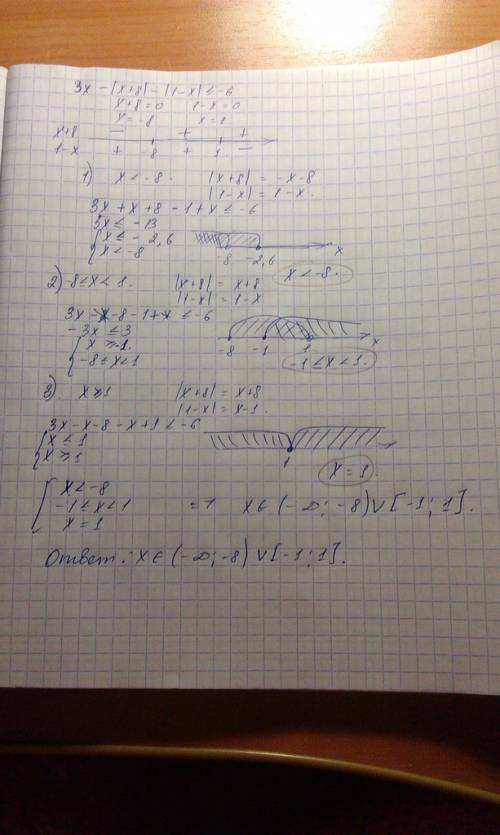 3x - |x+8| - |1-x| ≤ -6
x+8=0 1-x=0
x=-8 x=1
x+8 - + +
1-x + -8 + 1 -
1) x < -8. |x+8| = -x-8
|1-x| = 1-x.
3x + x + 8 - 1 + x ≤ -6
5x ≤ -13
x ≤ -2,6
x < -8
-8 -2,6 x
x < -8.
2) -8 ≤ x < 1. |x+8| = x+8
|1-x| = 1-x
3x - x - 8 - 1 + x ≤ -6
- 3x ≤ 3
x ≥ -1.
-8 ≤ x < 1
-8 -1 1 x
-1 ≤ x < 1.
3) x ≥ 1 |x+8| = x+8
|1-x| = x-1.
3x - x - 8 - x + 1 ≤ -6
x ≤ 1
x ≥ 1
1
x = 1
x < -8
-1 ≤ x < 1 => x ∈ (-∞; -8) ∨ [-1; 1].
x = 1
Ответ: x ∈ (-∞; -8) ∨ [-1; 1].